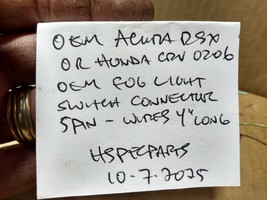 OEM ACURA RSX
OR HONDA CRV 02-06
OEM FOG LIGHT
SWITCH CONNECTOR
5PIN - WIRES 4" LONG
HSPECPARTS
10-7-2025